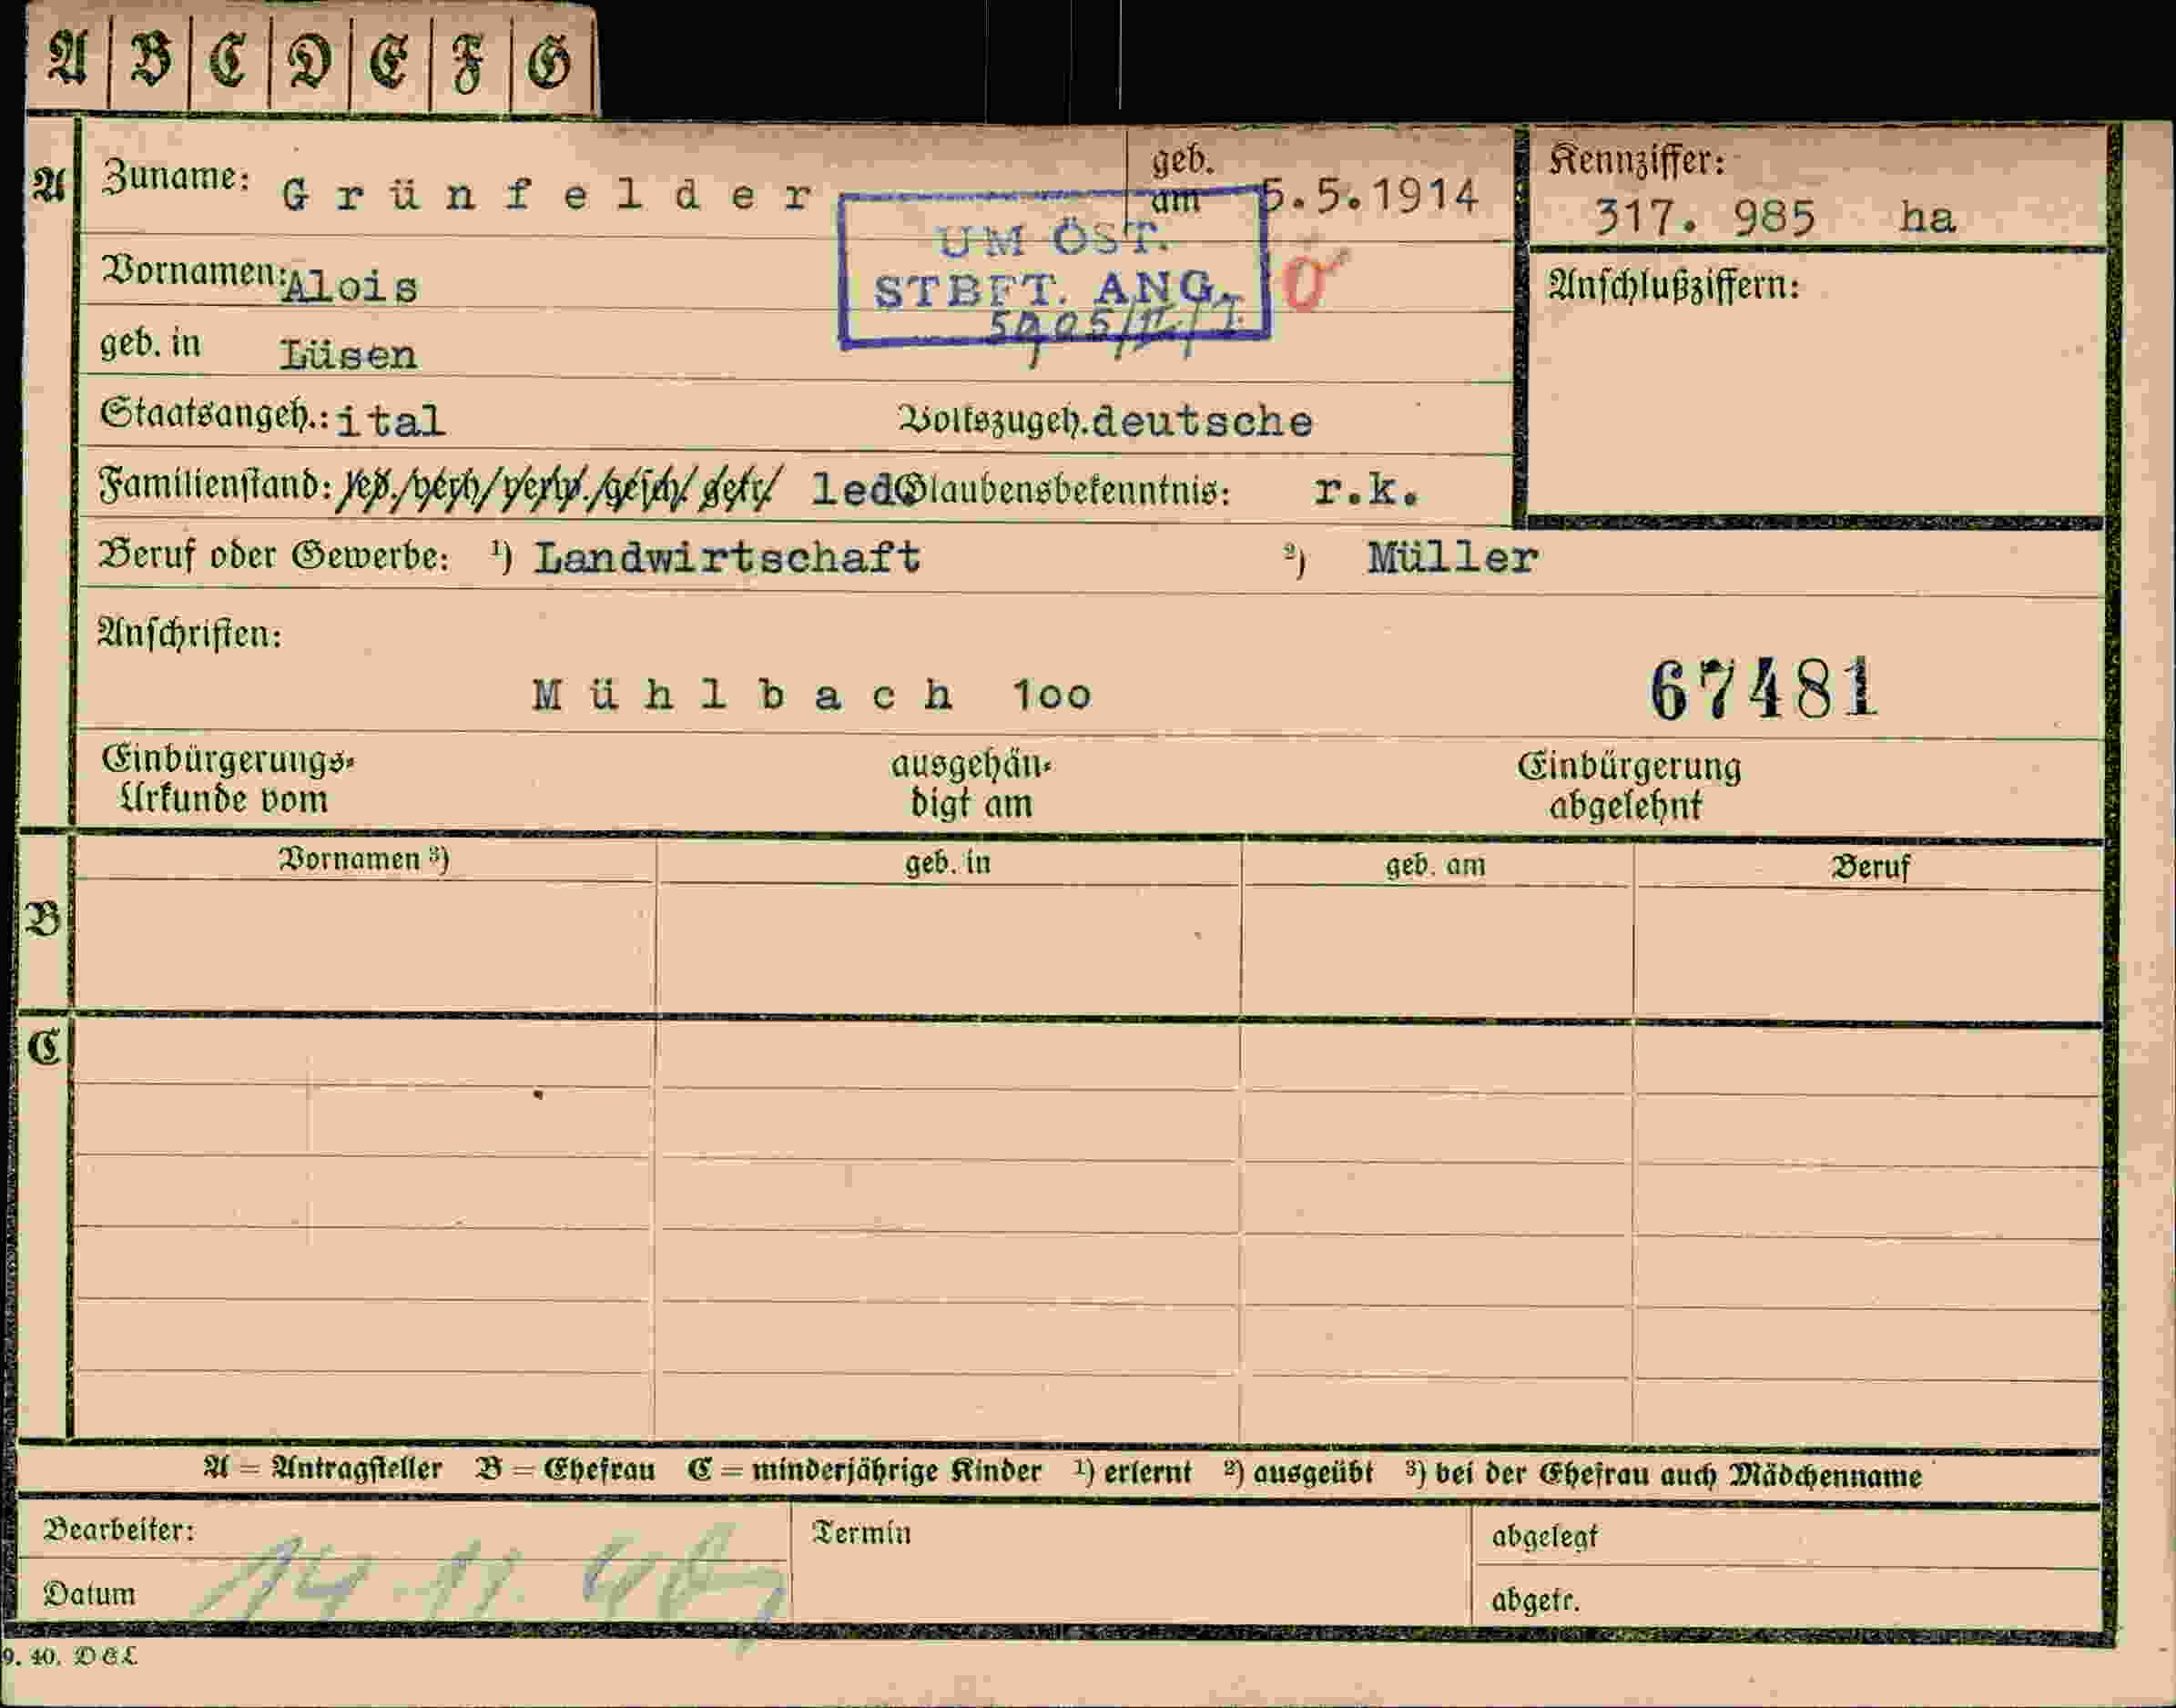 A B C D E F G
A Zuname: Grünfelder geb. am 5.5.1914 Kennziffer: 317. 985 ha
UM ÖST. STBFT. ANG.
Vornamen: Alois
Anschlußziffern:
geb. in Lüsen
Staatsangeh.: ital Volkszugeh. deutsche
Familienstand: led Glaubensbekenntnis: r.k.
Beruf oder Gewerbe: 1) Landwirtschaft 2) Müller
Anschriften:
Mühlbach 1oo 67481
Einbürgerungs- ausgehän- Einbürgerung
Urkunde vom digt am abgelehnt
Vornamen 3) geb. in geb. am Beruf
B
C
A = Antragsteller B = Ehefrau C = minderjährige Kinder 1) erlernt 2) ausgeübt 3) bei der Ehefrau auch Mädchenname
Bearbeiter: Termin abgelegt
Datum abgetr.
9. 40. D&L